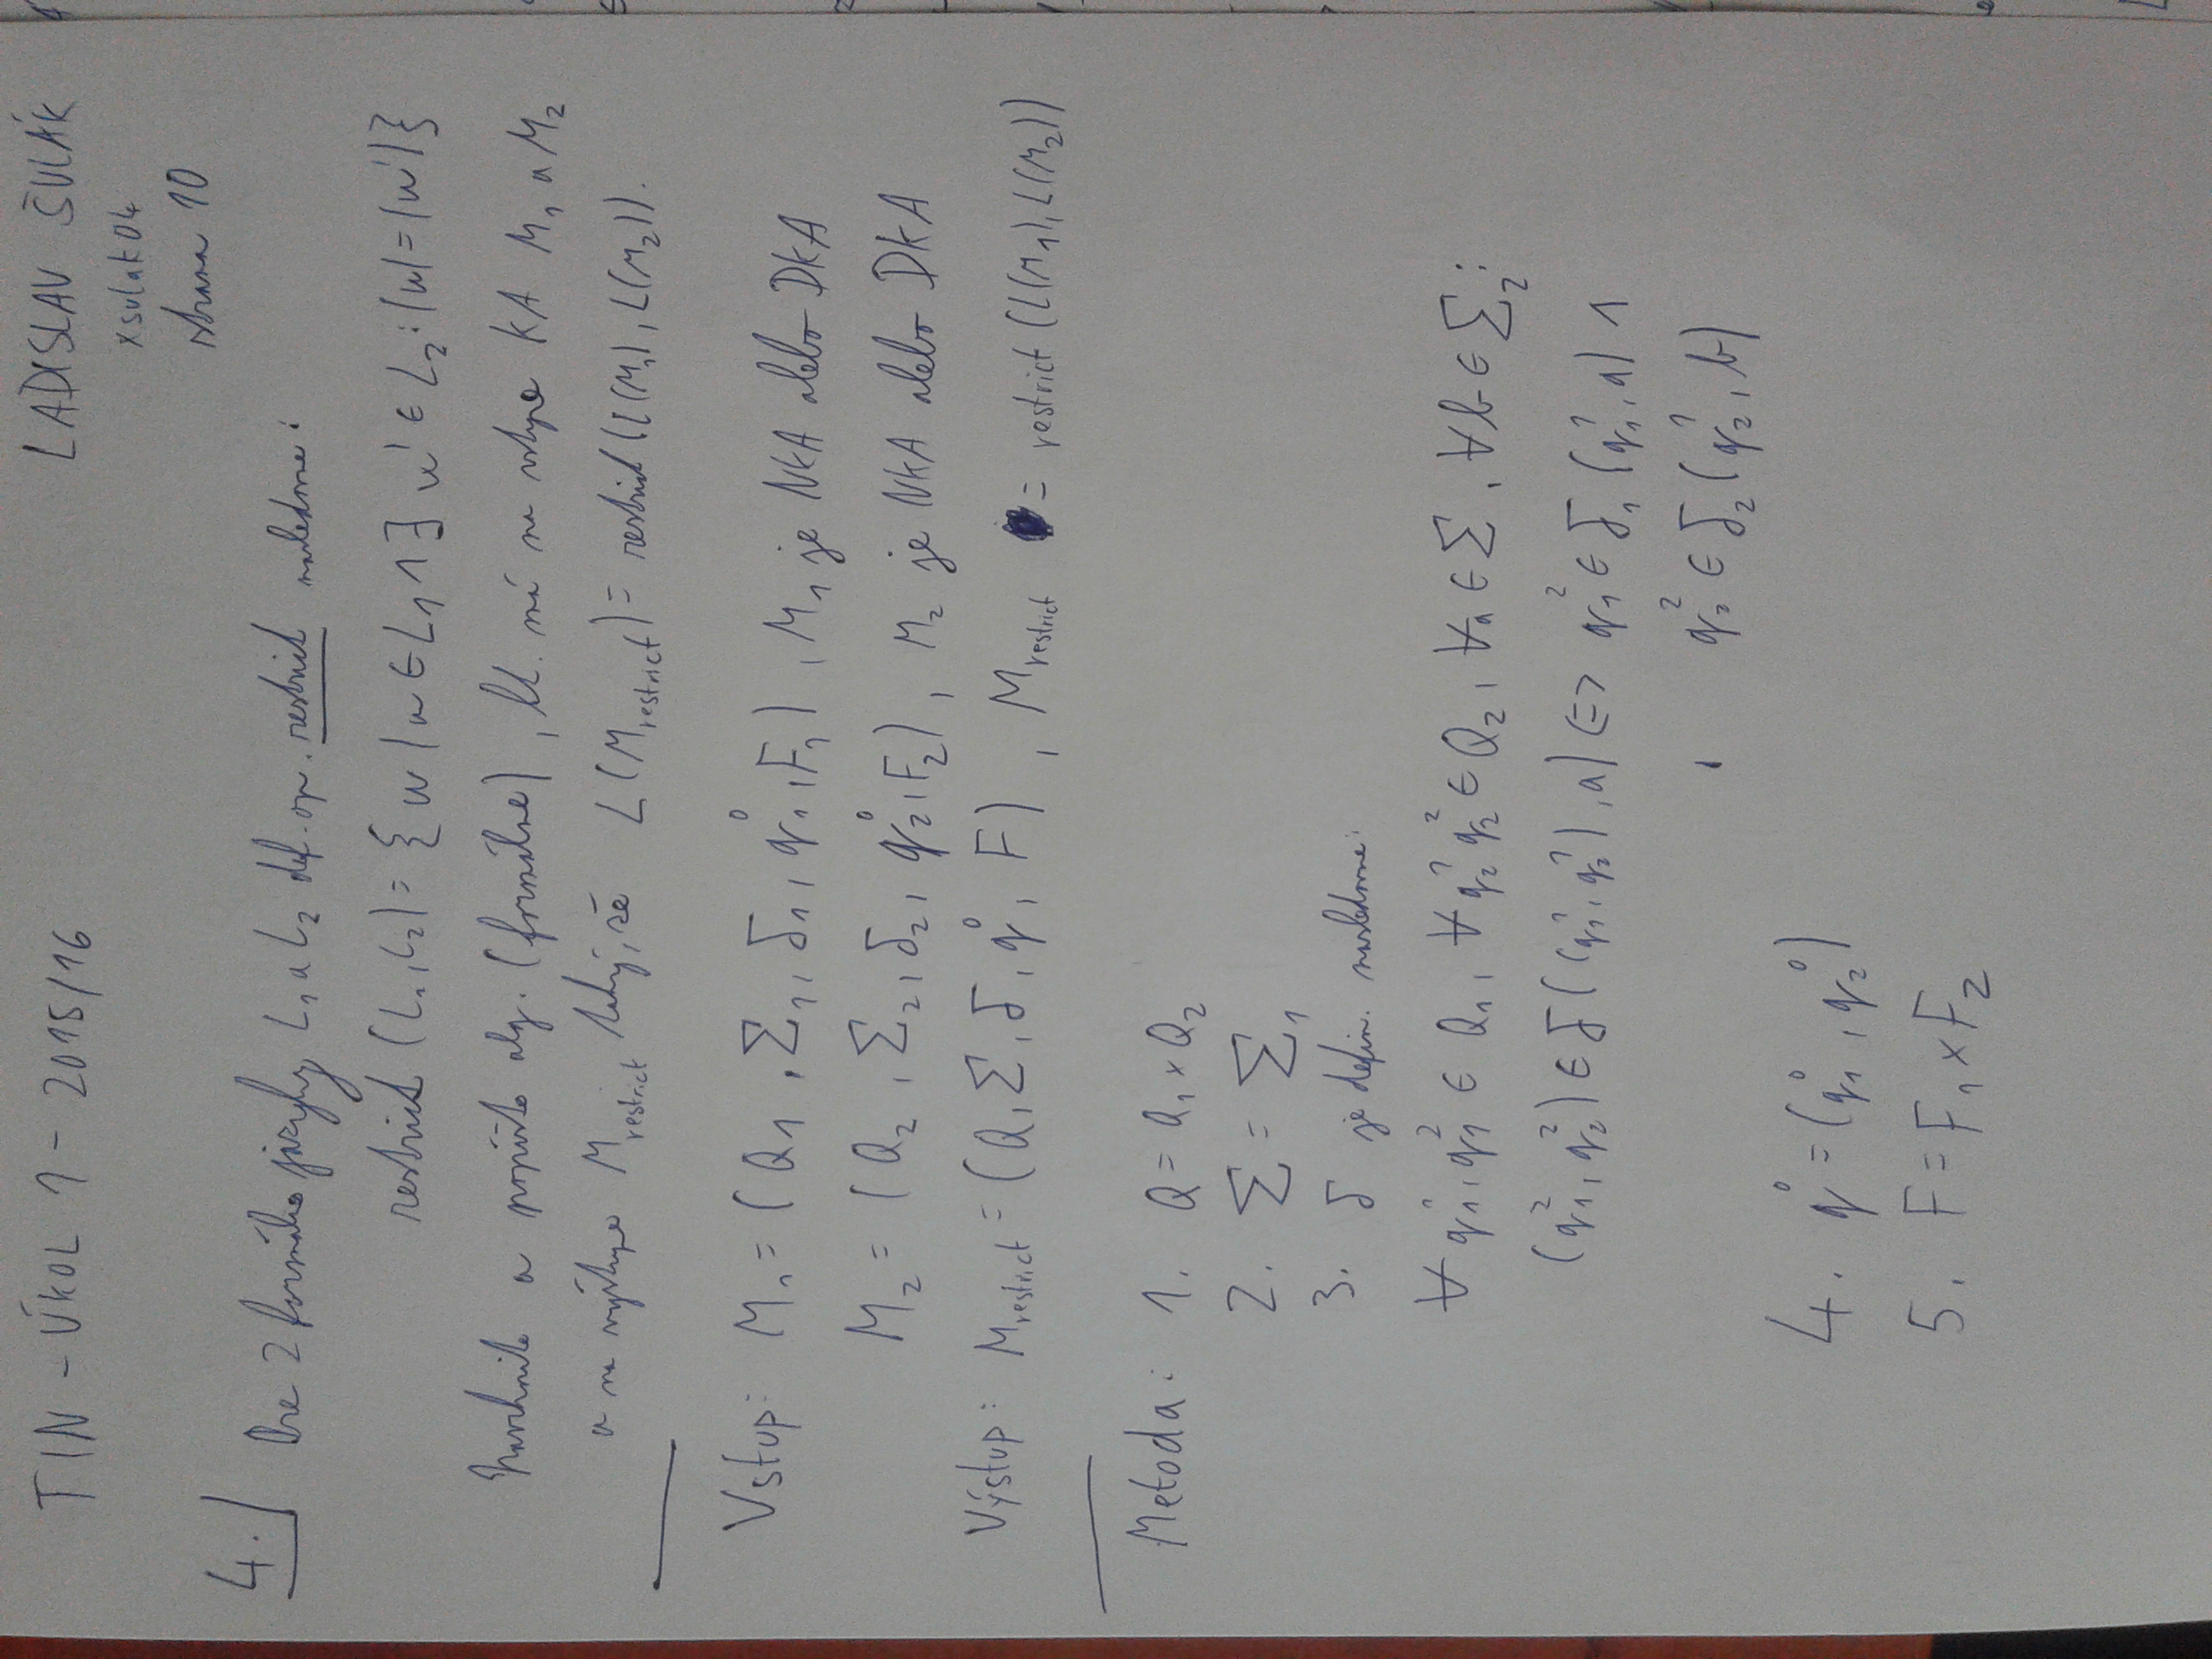 TIN - ÚKOL 1 - 2015/16
LADISLAV ŠULÁK
xsulak04
strana 10
4.
Pre 2 formálne jazyky L₁ a L₂ def. op. restrict nasledovne:
restrict (L₁, L₂) = { w | w ∈ L₁ ∧ ∃ w' ∈ L₂ : |w| = |w'| }
Navrhnite a popíšte alg. (formálne), kt. má na vstupe KA M₁ a M₂
a na výstupe M_restrict taký, že L(M_restrict) = restrict (L(M₁), L(M₂)).
Vstup: M₁ = (Q₁, Σ₁, δ₁, q₁⁰, F₁), M₁ je NKA alebo DKA
M₂ = (Q₂, Σ₂, δ₂, q₂⁰, F₂), M₂ je NKA alebo DKA
Výstup: M_restrict = (Q, Σ, δ, q⁰, F), M_restrict = restrict (L(M₁), L(M₂))
Metoda: 1. Q = Q₁ × Q₂
2. Σ = Σ₁
3. δ je defin. nasledovne:
∀ q₁¹, q₁² ∈ Q₁, ∀ q₂¹ q₂² ∈ Q₂, ∀a ∈ Σ, ∀b ∈ Σ₂:
(q₁², q₂²) ∈ δ((q₁¹, q₂¹), a) ⇔ q₁² ∈ δ₁(q₁¹, a) ∧
q₂² ∈ δ₂(q₂¹, b)
4. q⁰ = (q₁⁰, q₂⁰)
5. F = F₁ × F₂